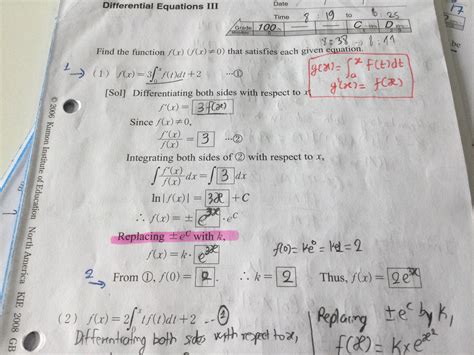 Differential Equations III
Date
Time 8 19 to 8 : 25
Grade 100%
C m D m
8:38 8:44
Find the function f(x) (f(x)≠0) that satisfies each given equation.
1 → (1) f(x)=3∫₀ˣ f(t)dt+2 ···①
g(x) = ∫ₐˣ f(t)dt
g'(x) = f(x)
[Sol] Differentiating both sides with respect to x
f'(x) = 3f(x)
Since f(x)≠0,
f'(x)/f(x) = 3 ···②
Integrating both sides of ② with respect to x,
∫ f'(x)/f(x) dx = ∫ 3 dx
ln|f(x)| = 3x + C
∴ f(x) = ± e^3x · e^C
Replacing ±e^C with k,
f(x) = k · e^3x
f(0) = ke⁰ = k = 2
2 → From ①, f(0) = 2 . ∴ k = 2 Thus, f(x) = 2e^3x
(2) f(x)=2∫₀ˣ tf(t)dt+2 ···①
Differentiating both sides with respect to x,
Replacing ±e^C by k,
f(x) = k × e^x²
© 2006 Kumon Institute of Education North America KIE 2008 GB
17